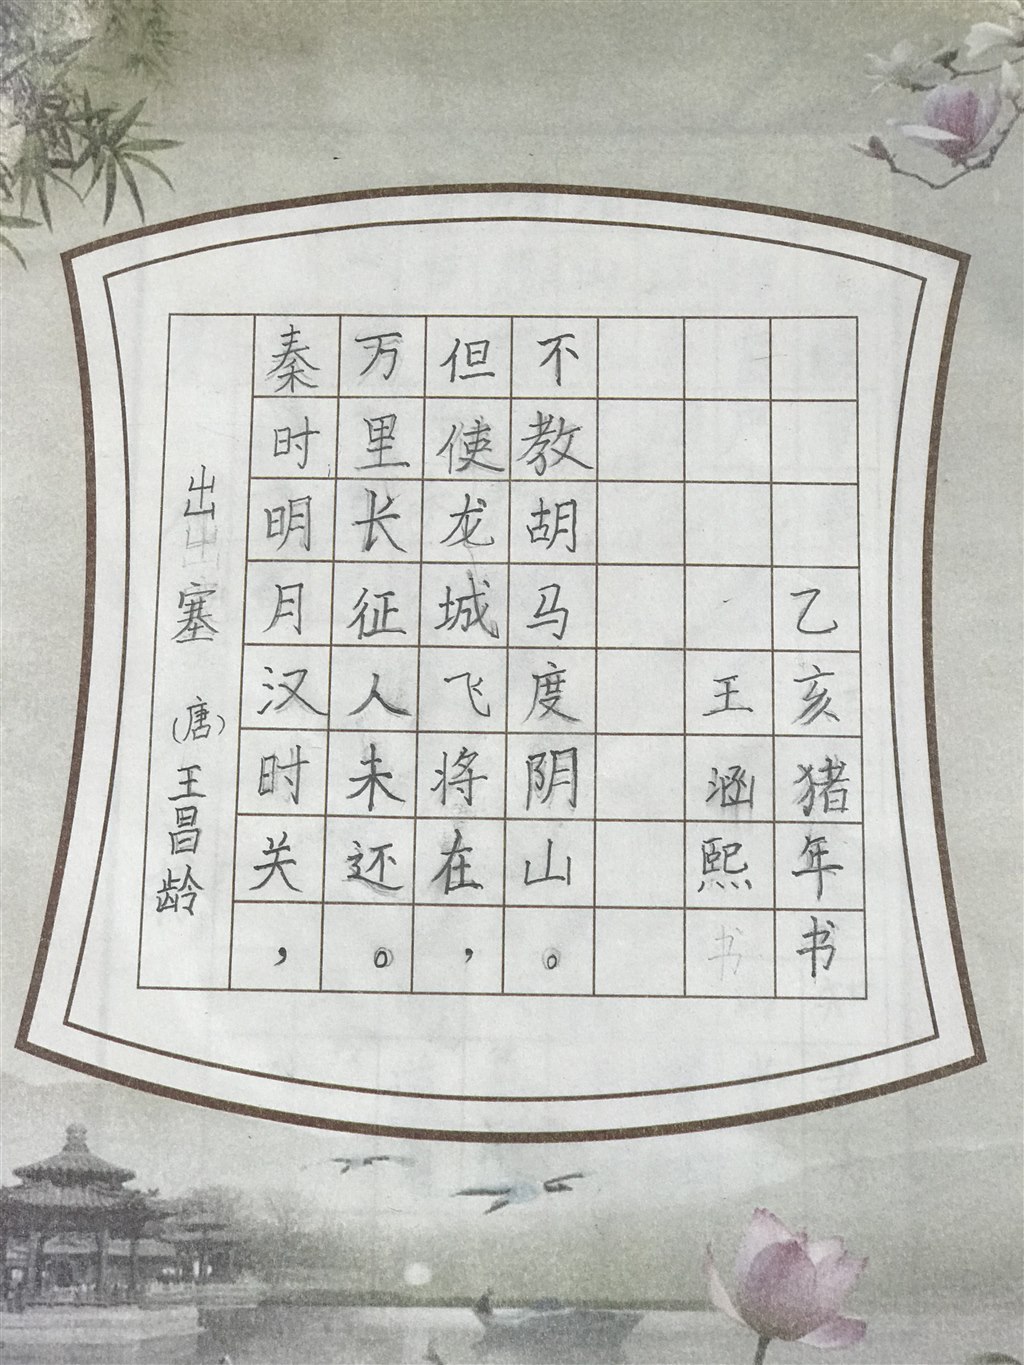 出塞 (唐)王昌龄
秦时明月汉时关，
万里长征人未还。
但使龙城飞将在，
不教胡马度阴山。
王涵熙
乙亥猪年书